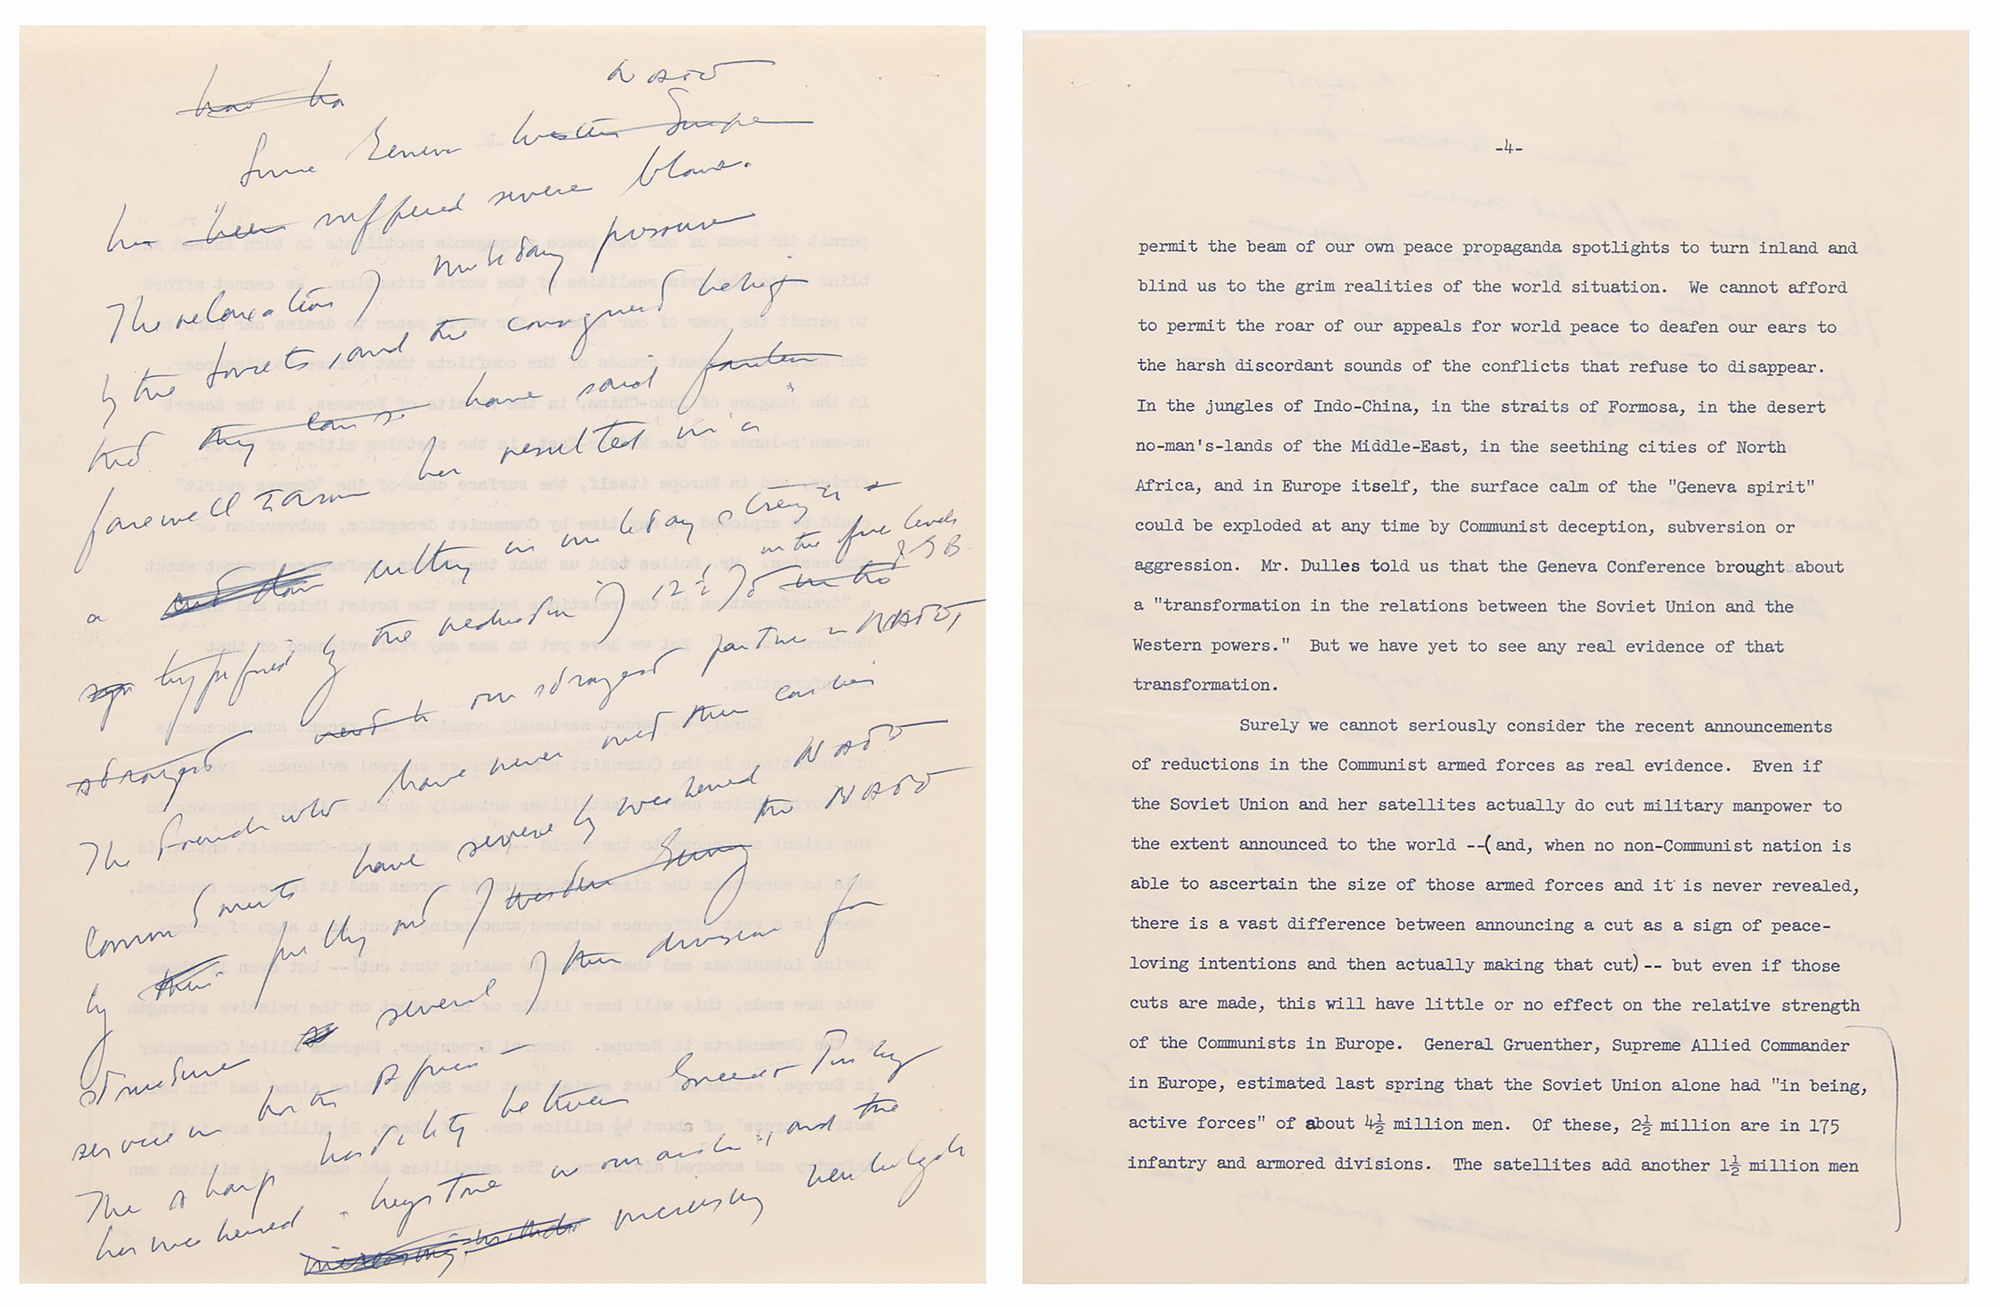 NATO
Since Geneva Western Europe
has been suffered severe blows.
The relaxation of military pressure
by the Soviets, and the consequent belief
that they can have said
farewell to arms has resulted in a
a cutting in military strength
in the five levels
typified by the reduction of 12½ % in the
our strongest partner in NATO,
strongest
The French who have never met their
commitments have severely weakened NATO
by their pulling out of Western the NATO
structure several of their divisions for
service in North Africa
The sharp hostility between Greece + Turkey
has weakened a keystone in our and the
increasing increasing
-4-
permit the beam of our own peace propaganda spotlights to turn inland and
blind us to the grim realities of the world situation. We cannot afford
to permit the roar of our appeals for world peace to deafen our ears to
the harsh discordant sounds of the conflicts that refuse to disappear.
In the jungles of Indo-China, in the straits of Formosa, in the desert
no-man's-lands of the Middle-East, in the seething cities of North
Africa, and in Europe itself, the surface calm of the "Geneva spirit"
could be exploded at any time by Communist deception, subversion or
aggression. Mr. Dulles told us that the Geneva Conference brought about
a "transformation in the relations between the Soviet Union and the
Western powers." But we have yet to see any real evidence of that
transformation.
Surely we cannot seriously consider the recent announcements
of reductions in the Communist armed forces as real evidence. Even if
the Soviet Union and her satellites actually do cut military manpower to
the extent announced to the world --(and, when no non-Communist nation is
able to ascertain the size of those armed forces and it is never revealed,
there is a vast difference between announcing a cut as a sign of peace-
loving intentions and then actually making that cut)-- but even if those
cuts are made, this will have little or no effect on the relative strength
of the Communists in Europe. General Gruenther, Supreme Allied Commander
in Europe, estimated last spring that the Soviet Union alone had "in being,
active forces" of about 4½ million men. Of these, 2½ million are in 175
infantry and armored divisions. The satellites add another 1½ million men